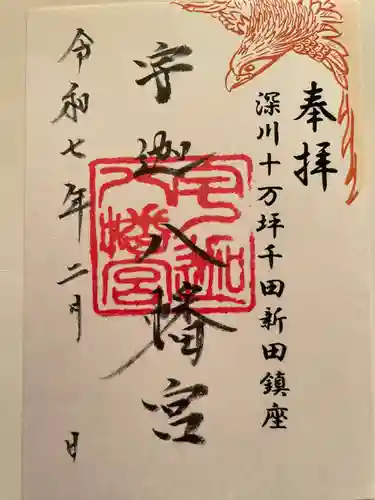 奉拝
深川十万坪千田新田鎮座
宇迦八幡宮
令和七年二月 日